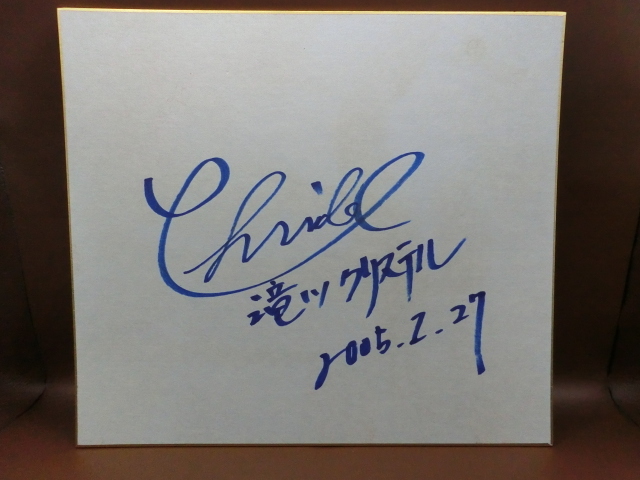 Christel
滝川クリステル
2005.2.27